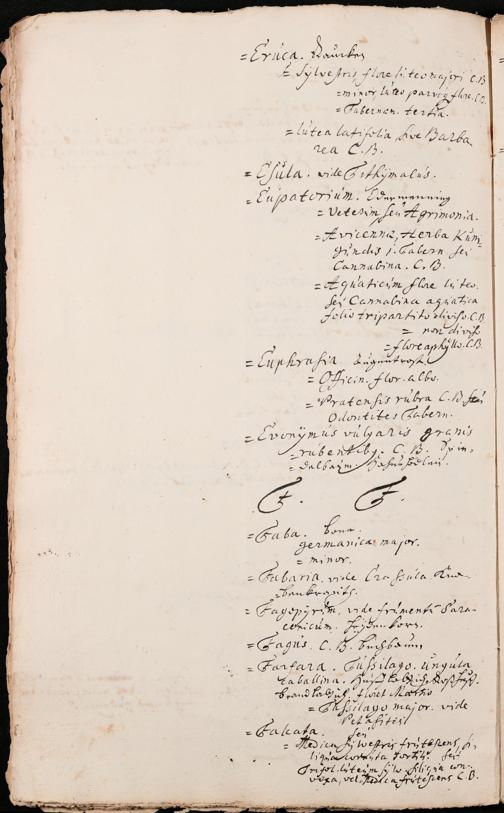 = Eruca. Raucken
= sylvestris flore luteo majori C.B.
= minor luteo parvoq flore. C.B.
= Tabernam. tertia.
= lutea latifolia sive Barba
rea C.B.
= Esula. vide Tithÿmalus.
= Eupatorium.
= Veterum seu Agrimonia.
= Avicennæ, Herba Kuni-
gundis Tabern. seu
Cannabina. C.B.
= Aquaticum flore luteo.
seu Cannabina aquatica
folio tripartito diviso. C.B.
= non diviso
= flore aphyllo. C.B.
= Euphrasia Augentrost
= Officin. flor. albo.
= Pratensis rubra C.B. seu
Odontites Tabern.
= Evonÿmus vulgaris granis
rubentibq. C.B. Spin-
delbaum
F. F.
= Faba. bona.
germanica major.
= minor.
= Fabaria. vide Crassula Kna-
benkraut.
= Fagopÿrum, vide frumentum Sara-
cenicum. Heÿdenkorn.
= Fagus. C.B. buchbaum
= Farfara. Tussilago. ungula
caballina. Roßhuff.
floret Martio
= Tussilago major. vide
Petasites
= Falcata. seu
= Medica sÿlvestris frutescens, si-
liqua cornuta seu
Trifol. luteum sÿlv. siliqua cor-
nuta, vel Medica frutescens C.B.